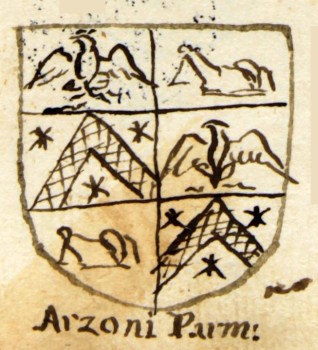 Arzoni Parm: